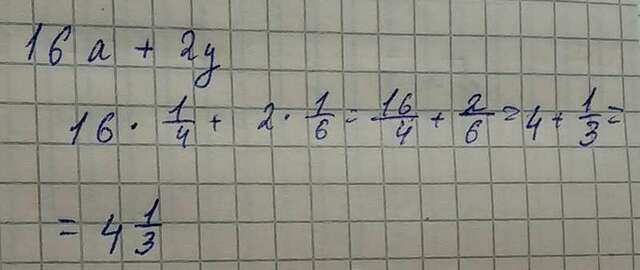 16 a + 2y
16 · 1/4 + 2 · 1/6 = 16/4 + 2/6 = 4 + 1/3 =
= 4 1/3